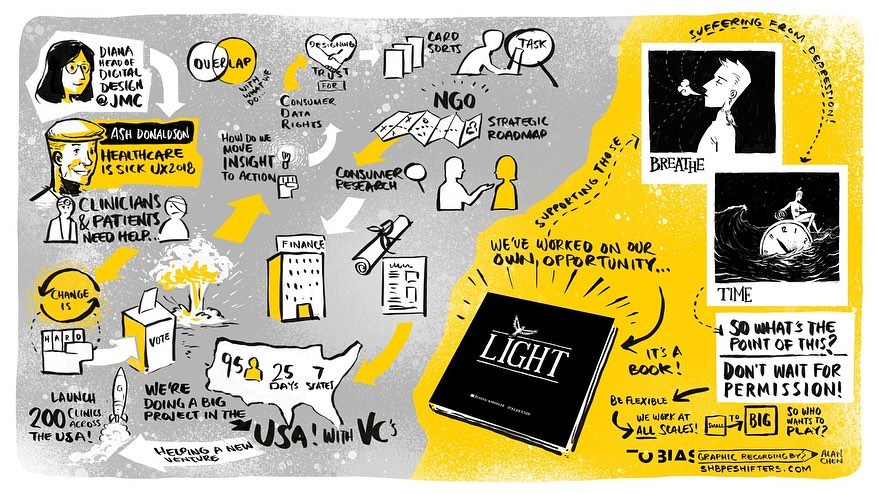 DIANA
HEAD OF
DIGITAL
DESIGN
@JMC
OVERLAP
WITH
WHAT WE
DO..
ASH DONALDSON
HEALTHCARE
IS SICK UX2018
CLINICIANS
& PATIENTS
NEED HELP...
CHANGE
IS
HARD
VOTE
LAUNCH
200 CLINICS
ACROSS
THE USA!
WE'RE
DOING A BIG
PROJECT IN THE
USA! WITH VC's
HELPING A NEW
VENTURE
95
25
DAYS
7
STATES
HOW DO WE
MOVE
INSIGHT
TO ACTION
DESIGNING
TRUST
FOR
CONSUMER
DATA
RIGHTS
CARD
SORTS
TASK
NGO
STRATEGIC
ROADMAP
CONSUMER
RESEARCH
FINANCE
SUPPORTING THOSE
SUFFERING FROM DEPRESSION!
BREATHE
TIME
WE'VE WORKED ON OUR
OWN OPPORTUNITY...
LIGHT
IT'S A
BOOK!
SO WHAT'S THE
POINT OF THIS?
DON'T WAIT FOR
PERMISSION!
BE FLEXIBLE
WE WORK AT
ALL SCALES!
SMALL
TO
BIG
SO WHO
WANTS TO
PLAY?
GRAPHIC RECORDING BY:
ALAN
CHEN
SHBPESHIFTERS.COM